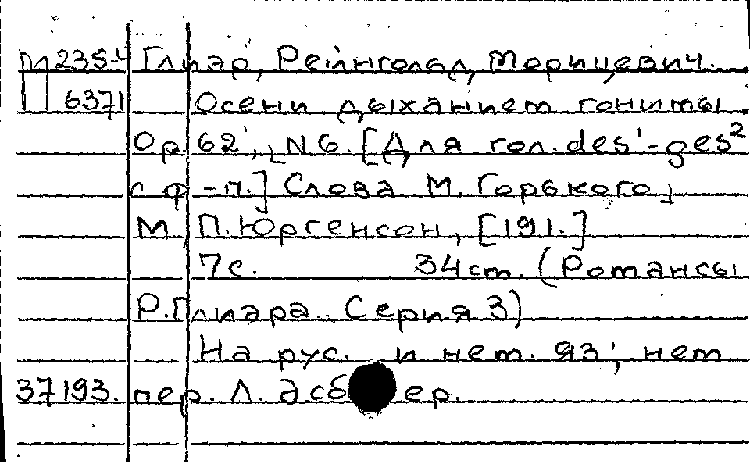 М235-4 Глиэр, Рейнгольд, Морицевич.
6371 Осени дыханием гонимы
Ор. 62, N6. [Для гол. des'-ges²
с ф.-п.] Слова М. Горького
М., П. Юргенсон, [191.]
7с. 34см. (Романсы
Р. Глиэра. Серия 3)
На рус. и нем. яз; нем
37193. пер. Л.